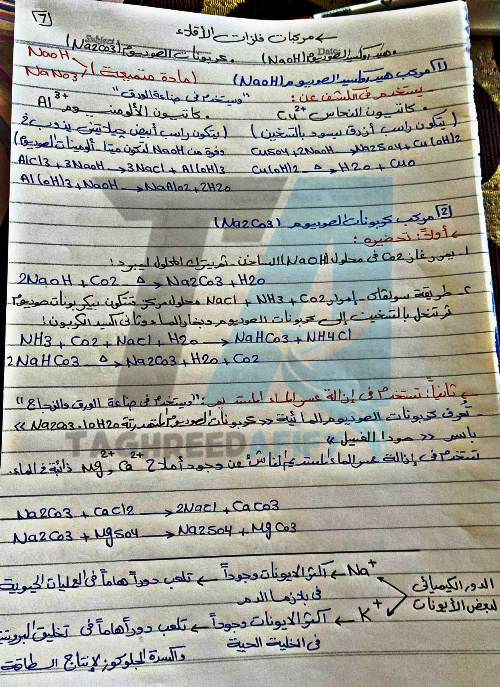 [7]
← مركبات فلزات الأقلاء
• هيدروكسيد الصوديوم (NaOH) • كربونات الصوديوم (Na2CO3)
NaOH
NaNO3 > (مادة متميعة)
[1] مركب هيدروكسيد الصوديوم (NaOH) "ويستخدم في صناعة الورق"
يستخدم في الكشف عن:
• كاتيون النحاس Cu2+ • كاتيون الألومنيوم Al3+
(يتكون راسب أزرق يسود بالتسخين) (يتكون راسب أبيض جيلاتيني يذوب في
وفرة من NaOH لتكون ميتا ألومينات الصوديوم)
CuSO4 + 2NaOH → Na2SO4 + Cu(OH)2
AlCl3 + 3NaOH → 3NaCl + Al(OH)3 Cu(OH)2 △→ H2O + CuO
Al(OH)3 + NaOH → NaAlO2 + 2H2O
[2] مركب كربونات الصوديوم (Na2CO3)
← أولاً: تحضيره:
١- يمرر غاز CO2 في محلول (NaOH) الساخن ثم يترك المحلول ليبرد:
2NaOH + CO2 △→ Na2CO3 + H2O
٢- طريقة سولفاي - إمرار CO2 + NH3 + NaCl محلول مركز تتكون بيكربونات صوديوم
ثم تنحل بالتسخين إلى كربونات الصوديوم وبخار الماء وثاني أكسيد الكربون:
NH3 + CO2 + NaCl + H2O → NaHCO3 + NH4Cl
2NaHCO3 △→ Na2CO3 + H2O + CO2
← ثانياً: تستخدم في إزالة عسر الماء المستديم: "وتستخدم في صناعة الورق والزجاج"
- تعرف كربونات الصوديوم المائية «كربونات الصوديوم المتهدرتة Na2CO3.10H2O»
باسم «صودا الغسيل»
تستخدم في إزالة عسر الماء المستديم الناشئ عن وجود أملاح Ca2+ و Mg2+ ذائبة في الماء.
TAGHREED AFIFI
Na2CO3 + CaCl2 → 2NaCl + CaCO3
Na2CO3 + MgSO4 → Na2SO4 + MgCO3
الدور الكيميائي لبعض الأيونات
Na+ ← أكثر الأيونات وجوداً ← تلعب دوراً هاماً في العمليات الحيوية
في بلازما الدم
K+ ← أكثر الأيونات وجوداً ← تلعب دوراً هاماً في تخليق البروتين
في الخلية الحية وأكسدة الجلوكوز لإنتاج الطاقة